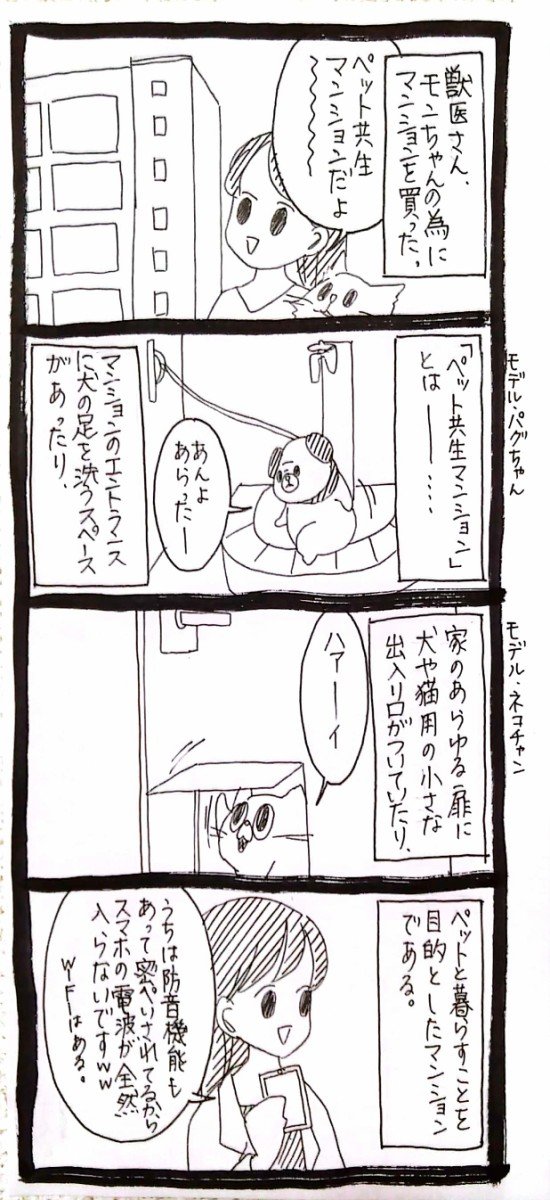 獣医さん、
モンちゃんの為に
マンションを買った。
ペット共生
マンションだよ
〜〜〜〜
「ペット共生マンション」
とは―――……
あんよ
あらったー
マンションのエントランス
に犬の足を洗うスペース
があったり、
モデル・パグちゃん
家のあらゆる扉に
犬や猫用の小さな
出入り口がついていたり、
ハァーィ
モデル・ネコチャン
ペットと暮らすことを
目的としたマンション
である。
うちは防音機能も
あって密ぺいされてるから
スマホの電波が全然
入らないですww
WiFiはある。